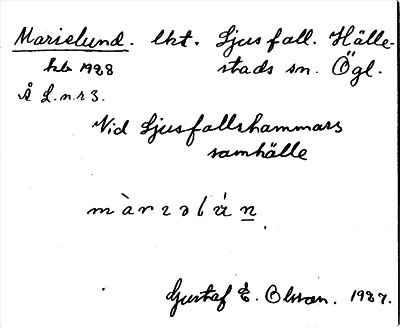 Marielund. lht. Ljusfall. Hälle-
hb 1928 stads sn. Ögl.
Å L.n.r 3.
Vid Ljusfallshammars
samhälle
màrɩəlún
Gustaf E. Olsson. 1927.